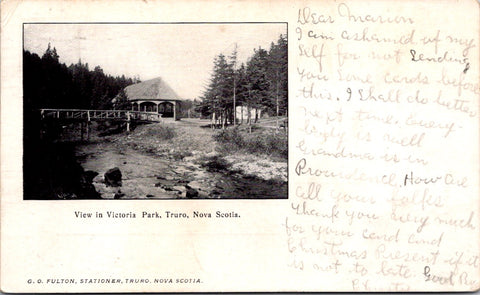 Dear Marion
I am ashamed of my
self for not Sending
you Some cards before
this. I Shall do better
next time. Every-
body is well
Grandma is in
Providence, How are
all your folks
Thank you very much
for your card and
Christmas Present if it
is not to late. Good Bye
View in Victoria Park, Truro, Nova Scotia.
G. O. FULTON, STATIONER, TRURO, NOVA SCOTIA.